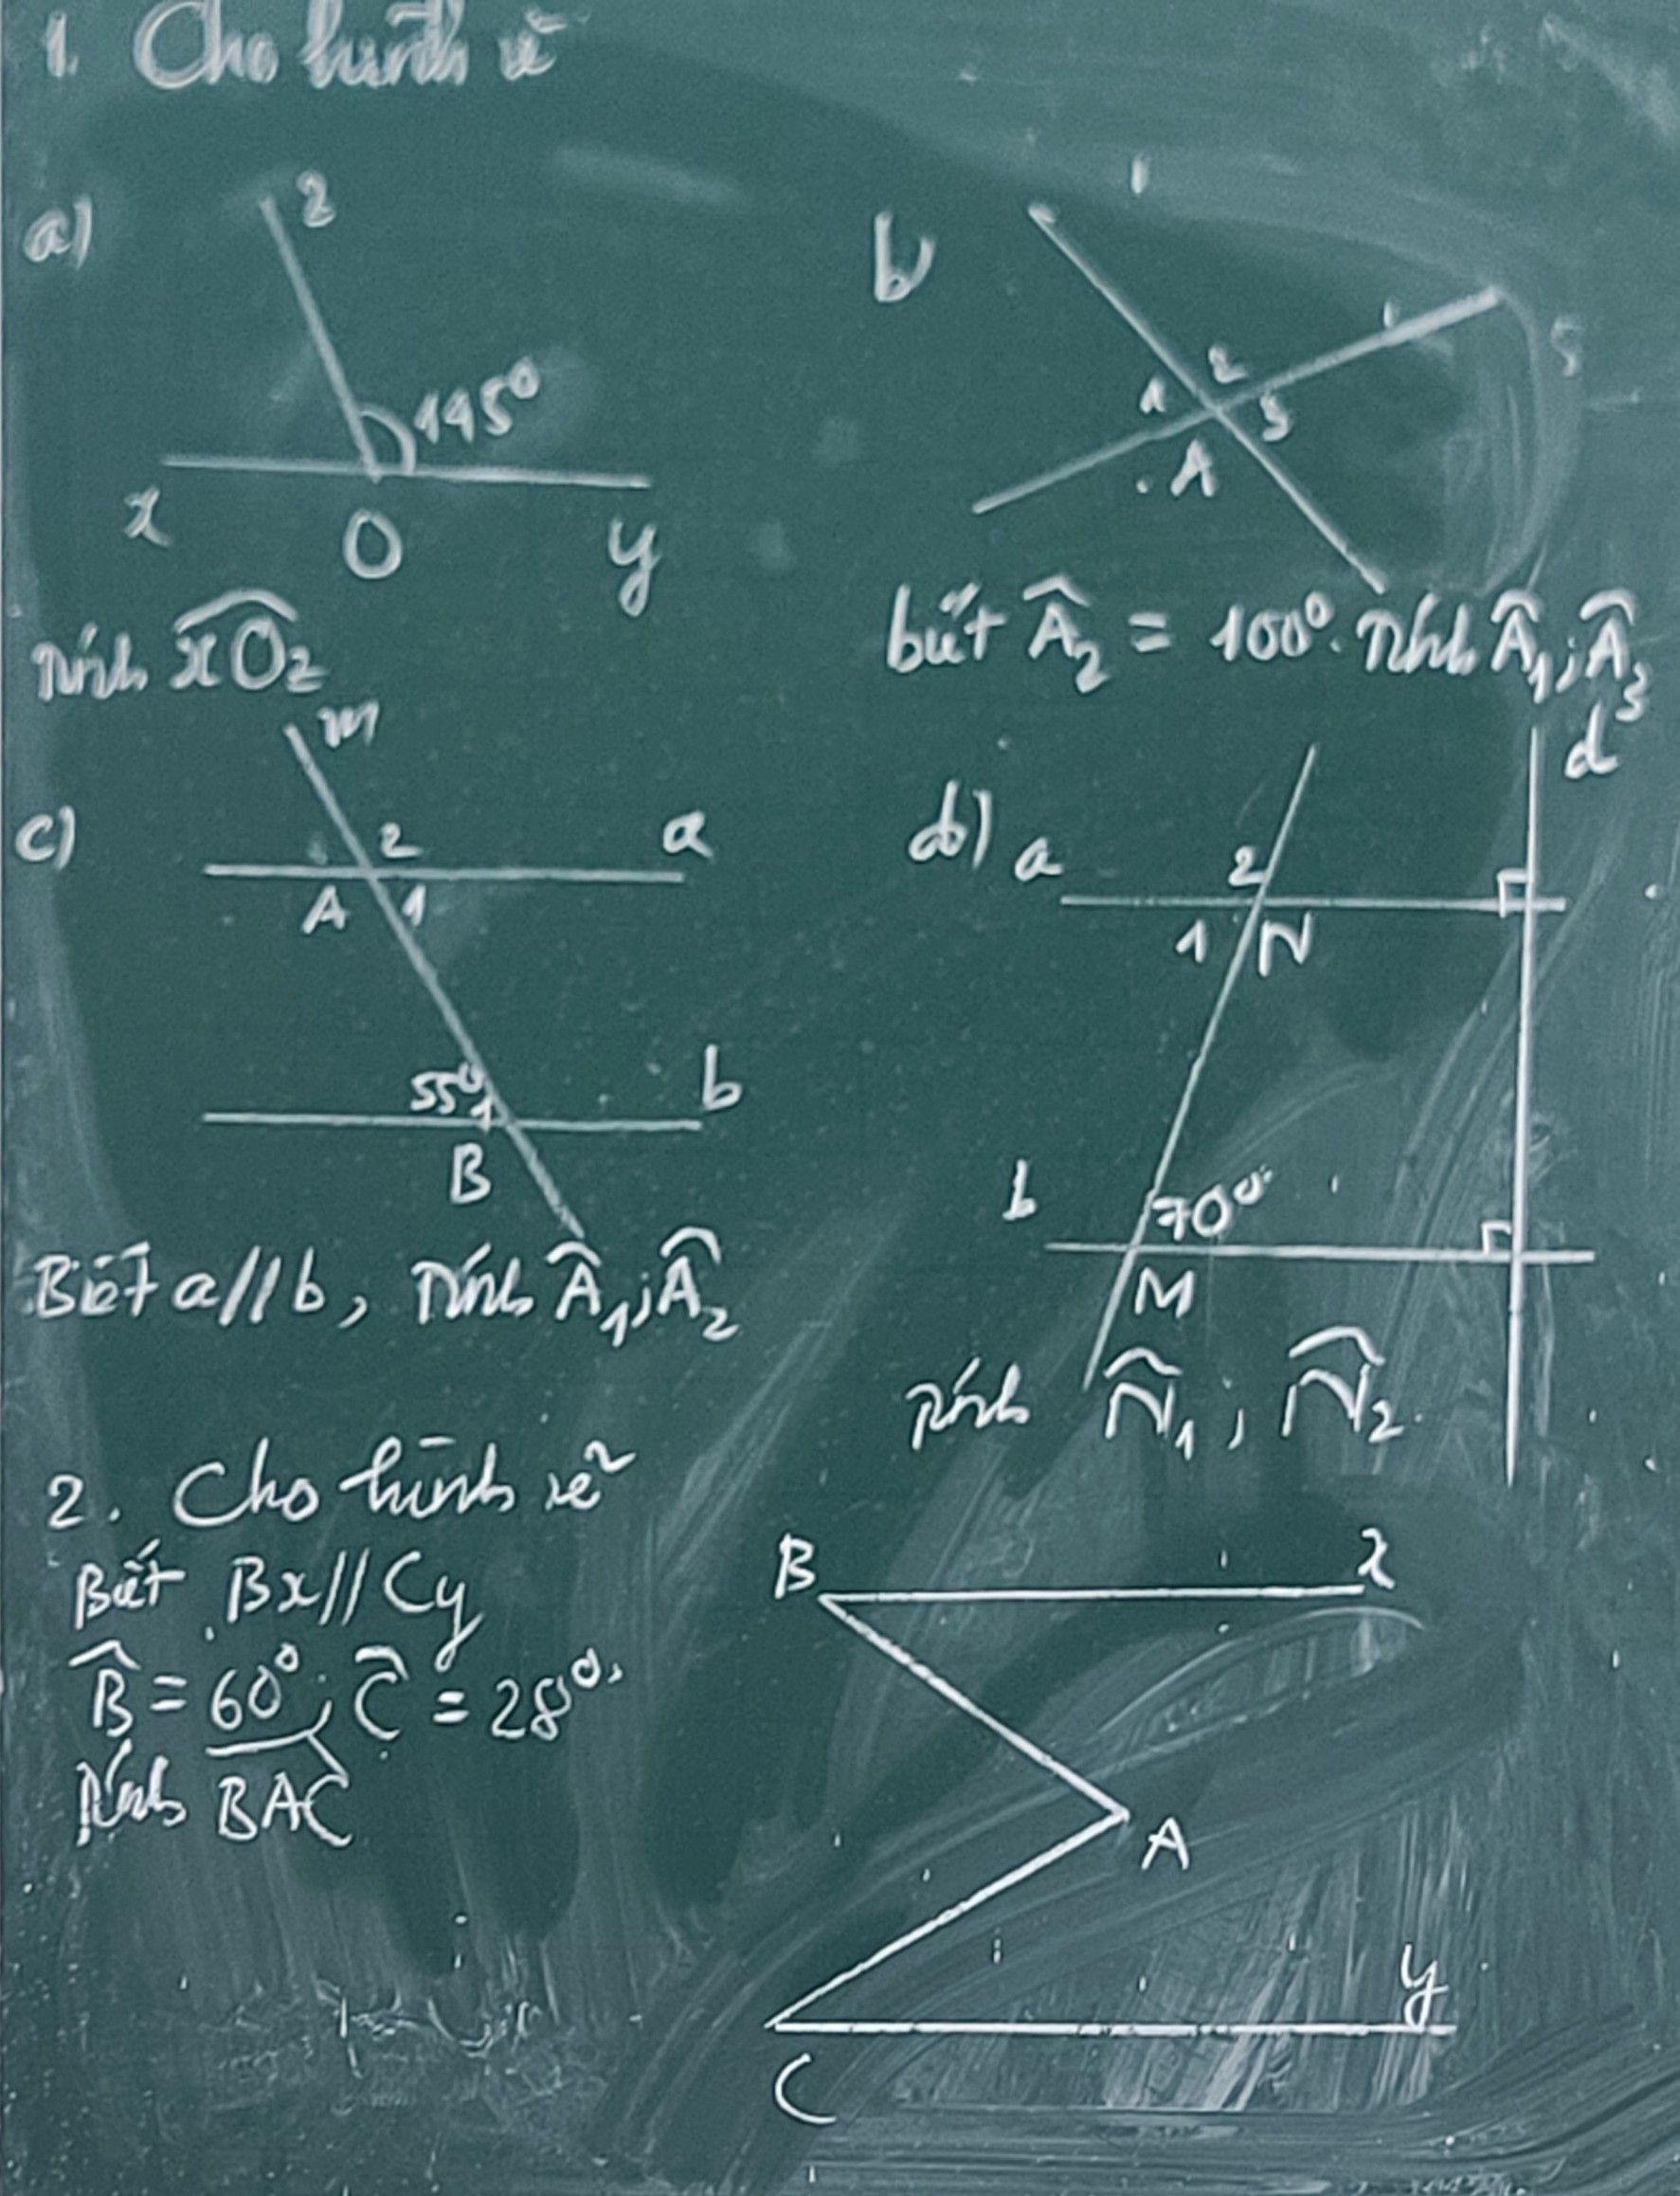 1. Cho hình vẽ
a)
z
145°
x O y
Tính xOz
b)
1 2 3
A
biết A₂ = 100°. Tính A₁; A₃
c)
m
2 a
A 1
55° 1 b
B
Biết a//b, Tính A₁; A₂
d)
d
a 2
1 N
b 70°
M
Tính N₁; N₂.
2. Cho hình vẽ
Biết Bx//Cy
B = 60°; C = 28°.
Tính BAC
B x
A
y
C